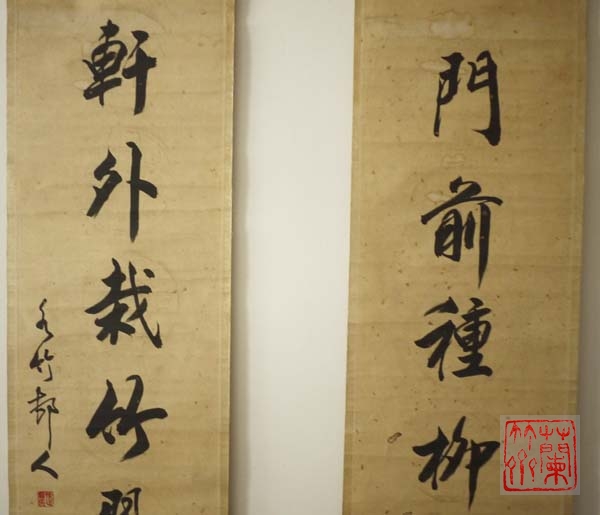 門前種柳
軒外栽竹
水竹邨人